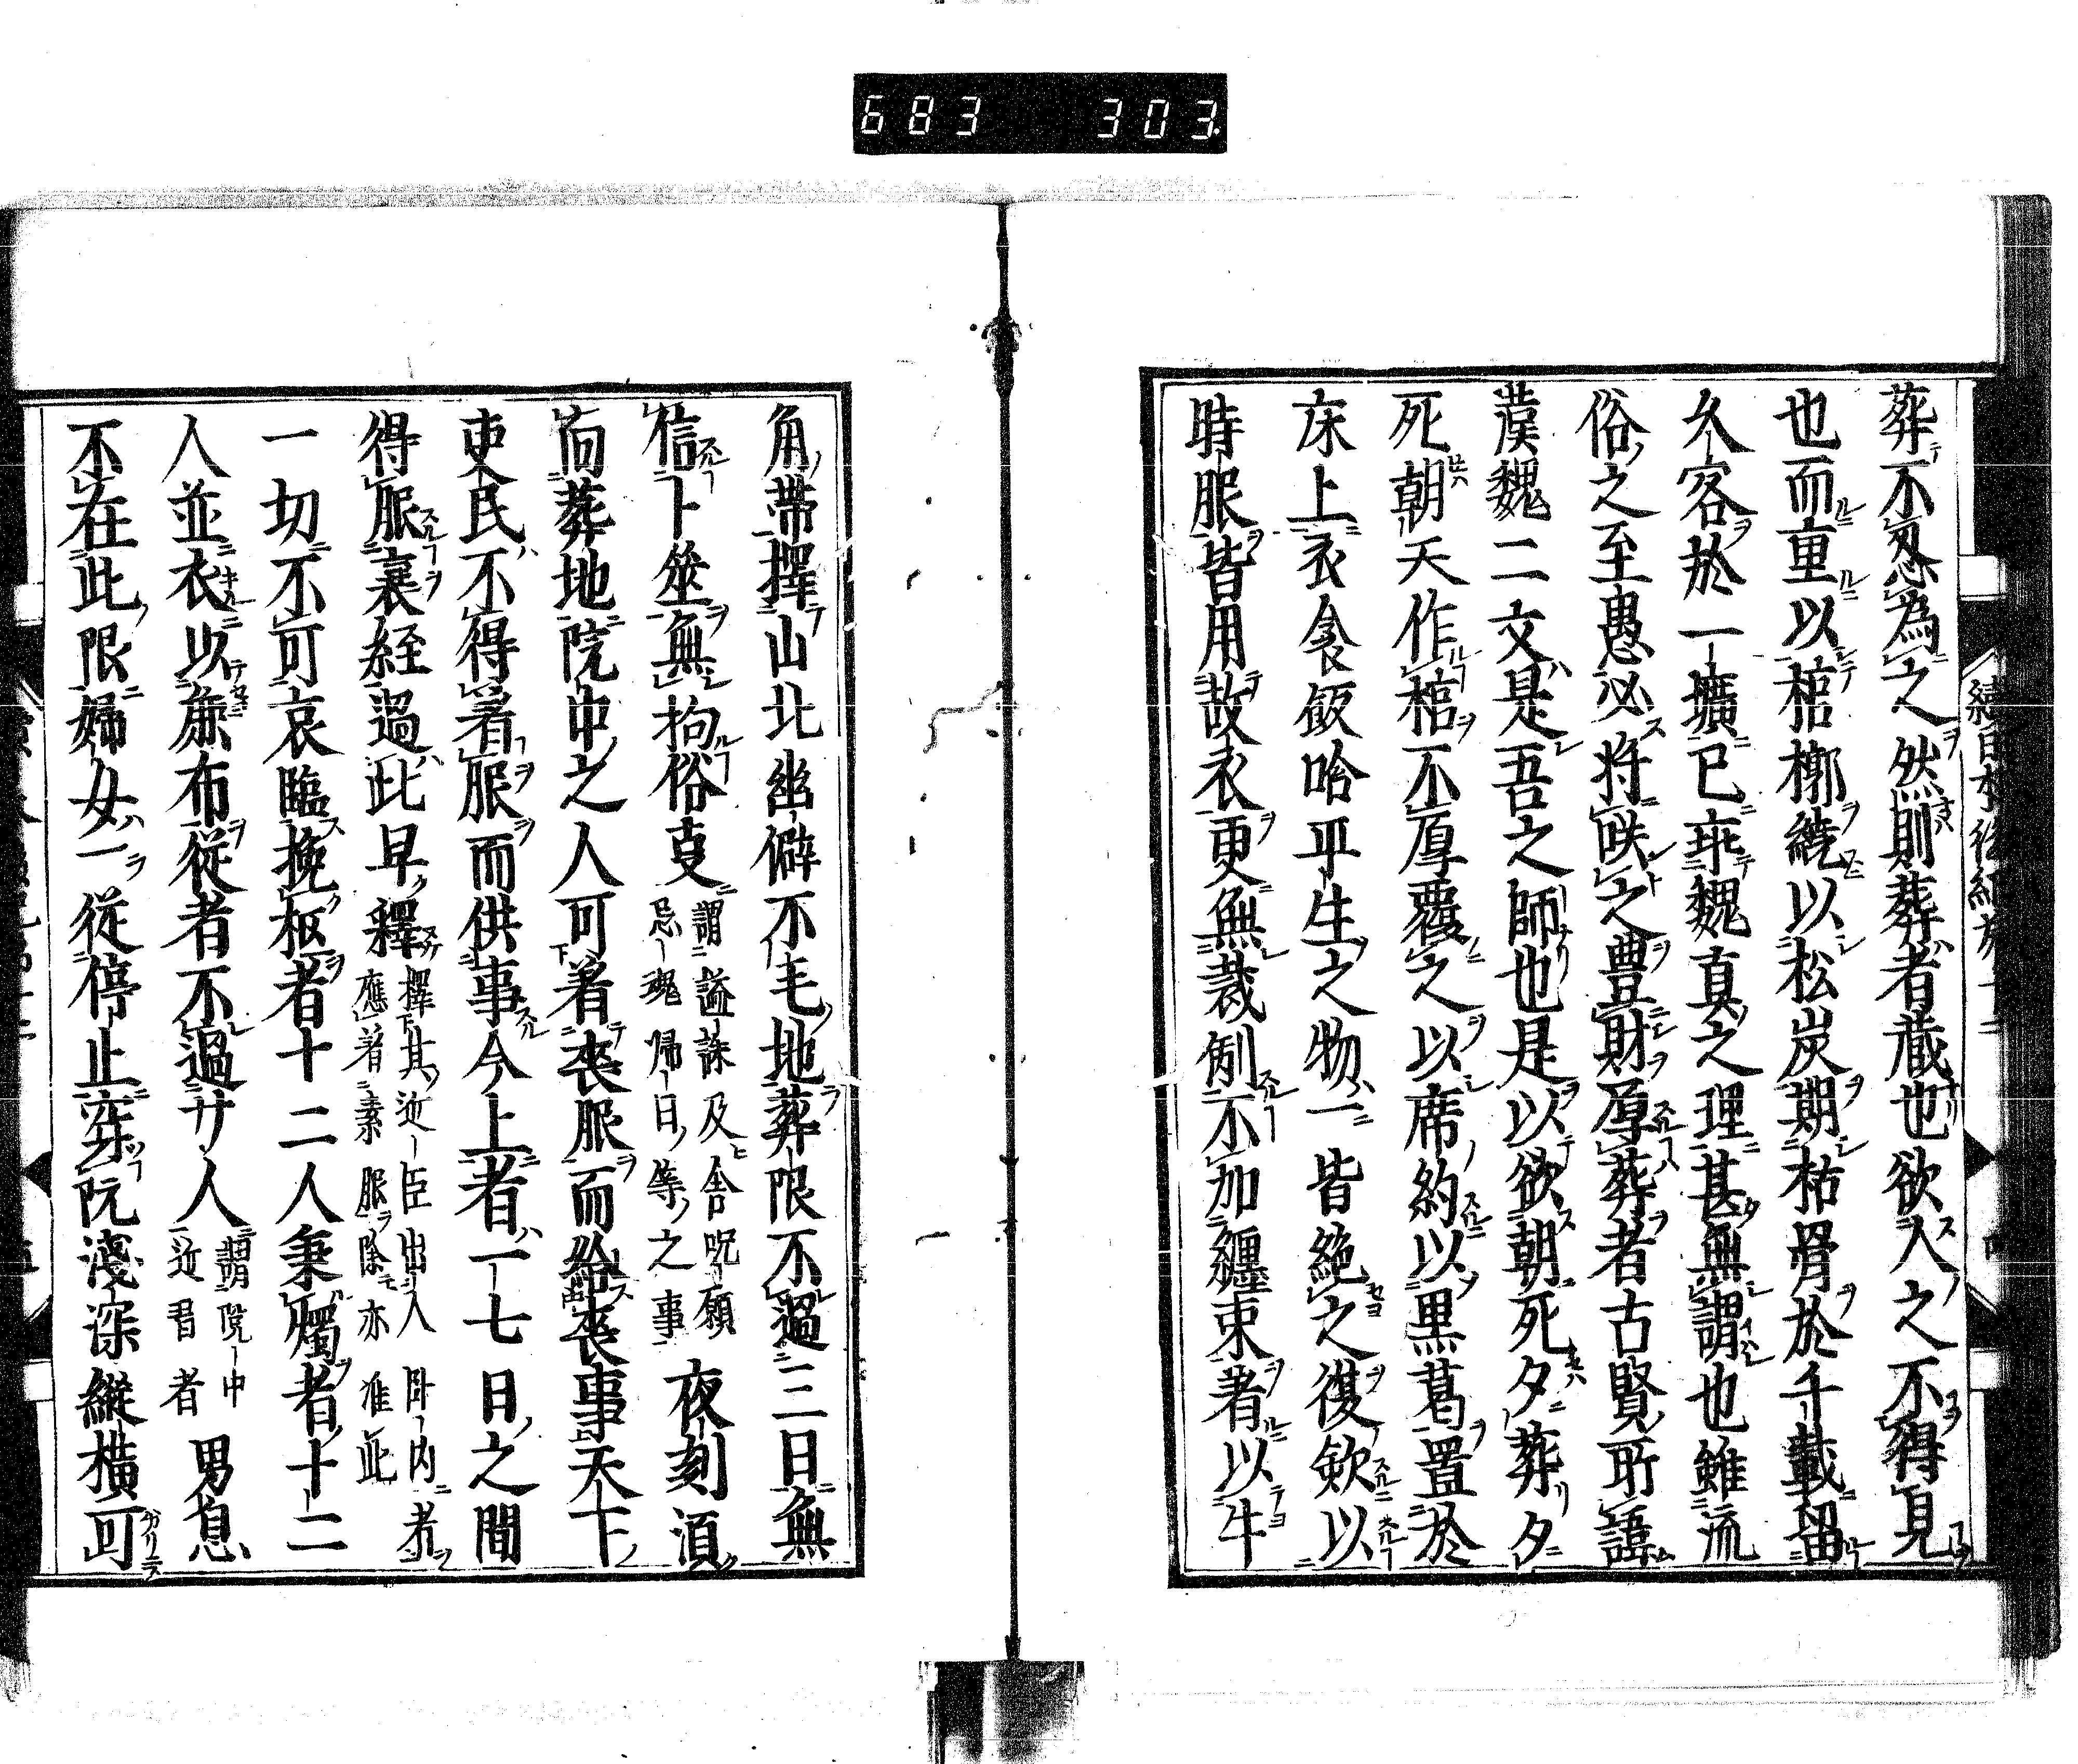 683 303
葬不忍為之然則葬者蔵也欲人之不得見
也而重以棺槨繞以松炭期枯骨於千載留
久客於一壙已乖魏真之理甚無謂也雖流
俗之至愚必将咲之豊財厚葬者古賢所諱
漢魏二文是吾之師也是以欲朝死夕葬夕
死朝天作棺不厚覆之以席約以黒葛置於
床上衣衾飯唅平生之物一皆絶之復歛以
時服皆用故衣更無裁制不加纏束著以牛
角帯擇山北幽僻不毛地葬限不過三日無
信卜筮無拘俗事
謂諡誄及舎呪願
忌魂帰日等之事
夜刻須
向葬地院中之人可著喪服而給喪事天下
吏民不得著服而供事今上者一七日之間
得服衰絰過此早釋
擇其近臣出入臥内者
應著素服除亦准此
一切不可哀臨挽柩者十二人秉燭者十二
人並衣以麁布従者不過廿人
謂院中
近習者
男息
不在此限婦女一従停止穿阬淺深縱横可